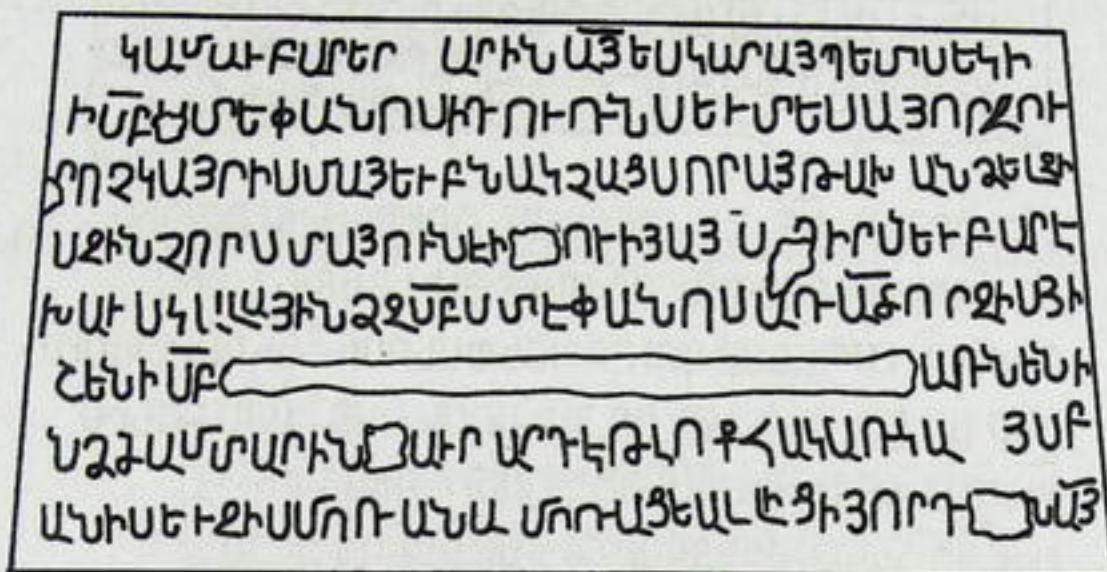 ԿԱՄԱՒԲԱՐԵՐ ԱՐԻՆԱՅԵՍԿԱՐԱՅՊԵՏՍԵԿԻ
ԻՍԲԸՍՏԵՓԱՆՈՍԻՏՈՒՌՆՍԵՒՏԵՍԱՅՈՐՋՈՒ
ՐՈՉԿԱՅՐԻՍՄԱՅԵՒԲՆԱԿՉԱՑՍՈՐԱՅԹԱԽ ԱՆՁԵԼՋԻ
ՍՋԻՆՉՈՐՍՏԱՅՈՒՆԷԻ ՈՒԻՅԱՅ Ս ԻՐՄԵՒԲԱՐԷ
ԽԱՒՍԿ ԱՅԻՆՁՋՍԲՍՏԷՓԱՆՈՍԱՌԱՃՈՐՋԻՍՅԻ
ՇԵՆԻՍԲ ԱՌՆԵՆԻ
ՆՁՁԱՄՏԱՐԻՆ ԱՒՐ ԱՐԴԷԹԼՈՔՀԱԿԱՌԿԱ ՅՍԲ
ԱՆԻՍԵՒՋԻՍՄՈՌԱՆԱ ՄՈՌԱՑԵԱԼԼԻՑԻՅՈՐԴ ՆԱՅ